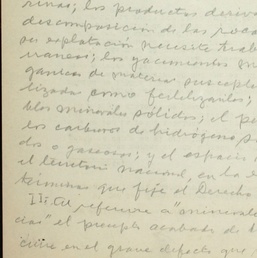 rinas; los productos deriva
descomposición de las roca
su explotación necesite trab
raneos; los yacimientos
gánicos de materias suscepti
lizadas como fertilizantes;
bles minerales sólidos; el pe
los carburos de hidrógeno s
dos o gaseosos; y el espacio
el territorio nacional, en la e
términos que fije el Derecho
II. Al referirse a "minerale
cias" el precepto acabado de
curre en el grave defecto que